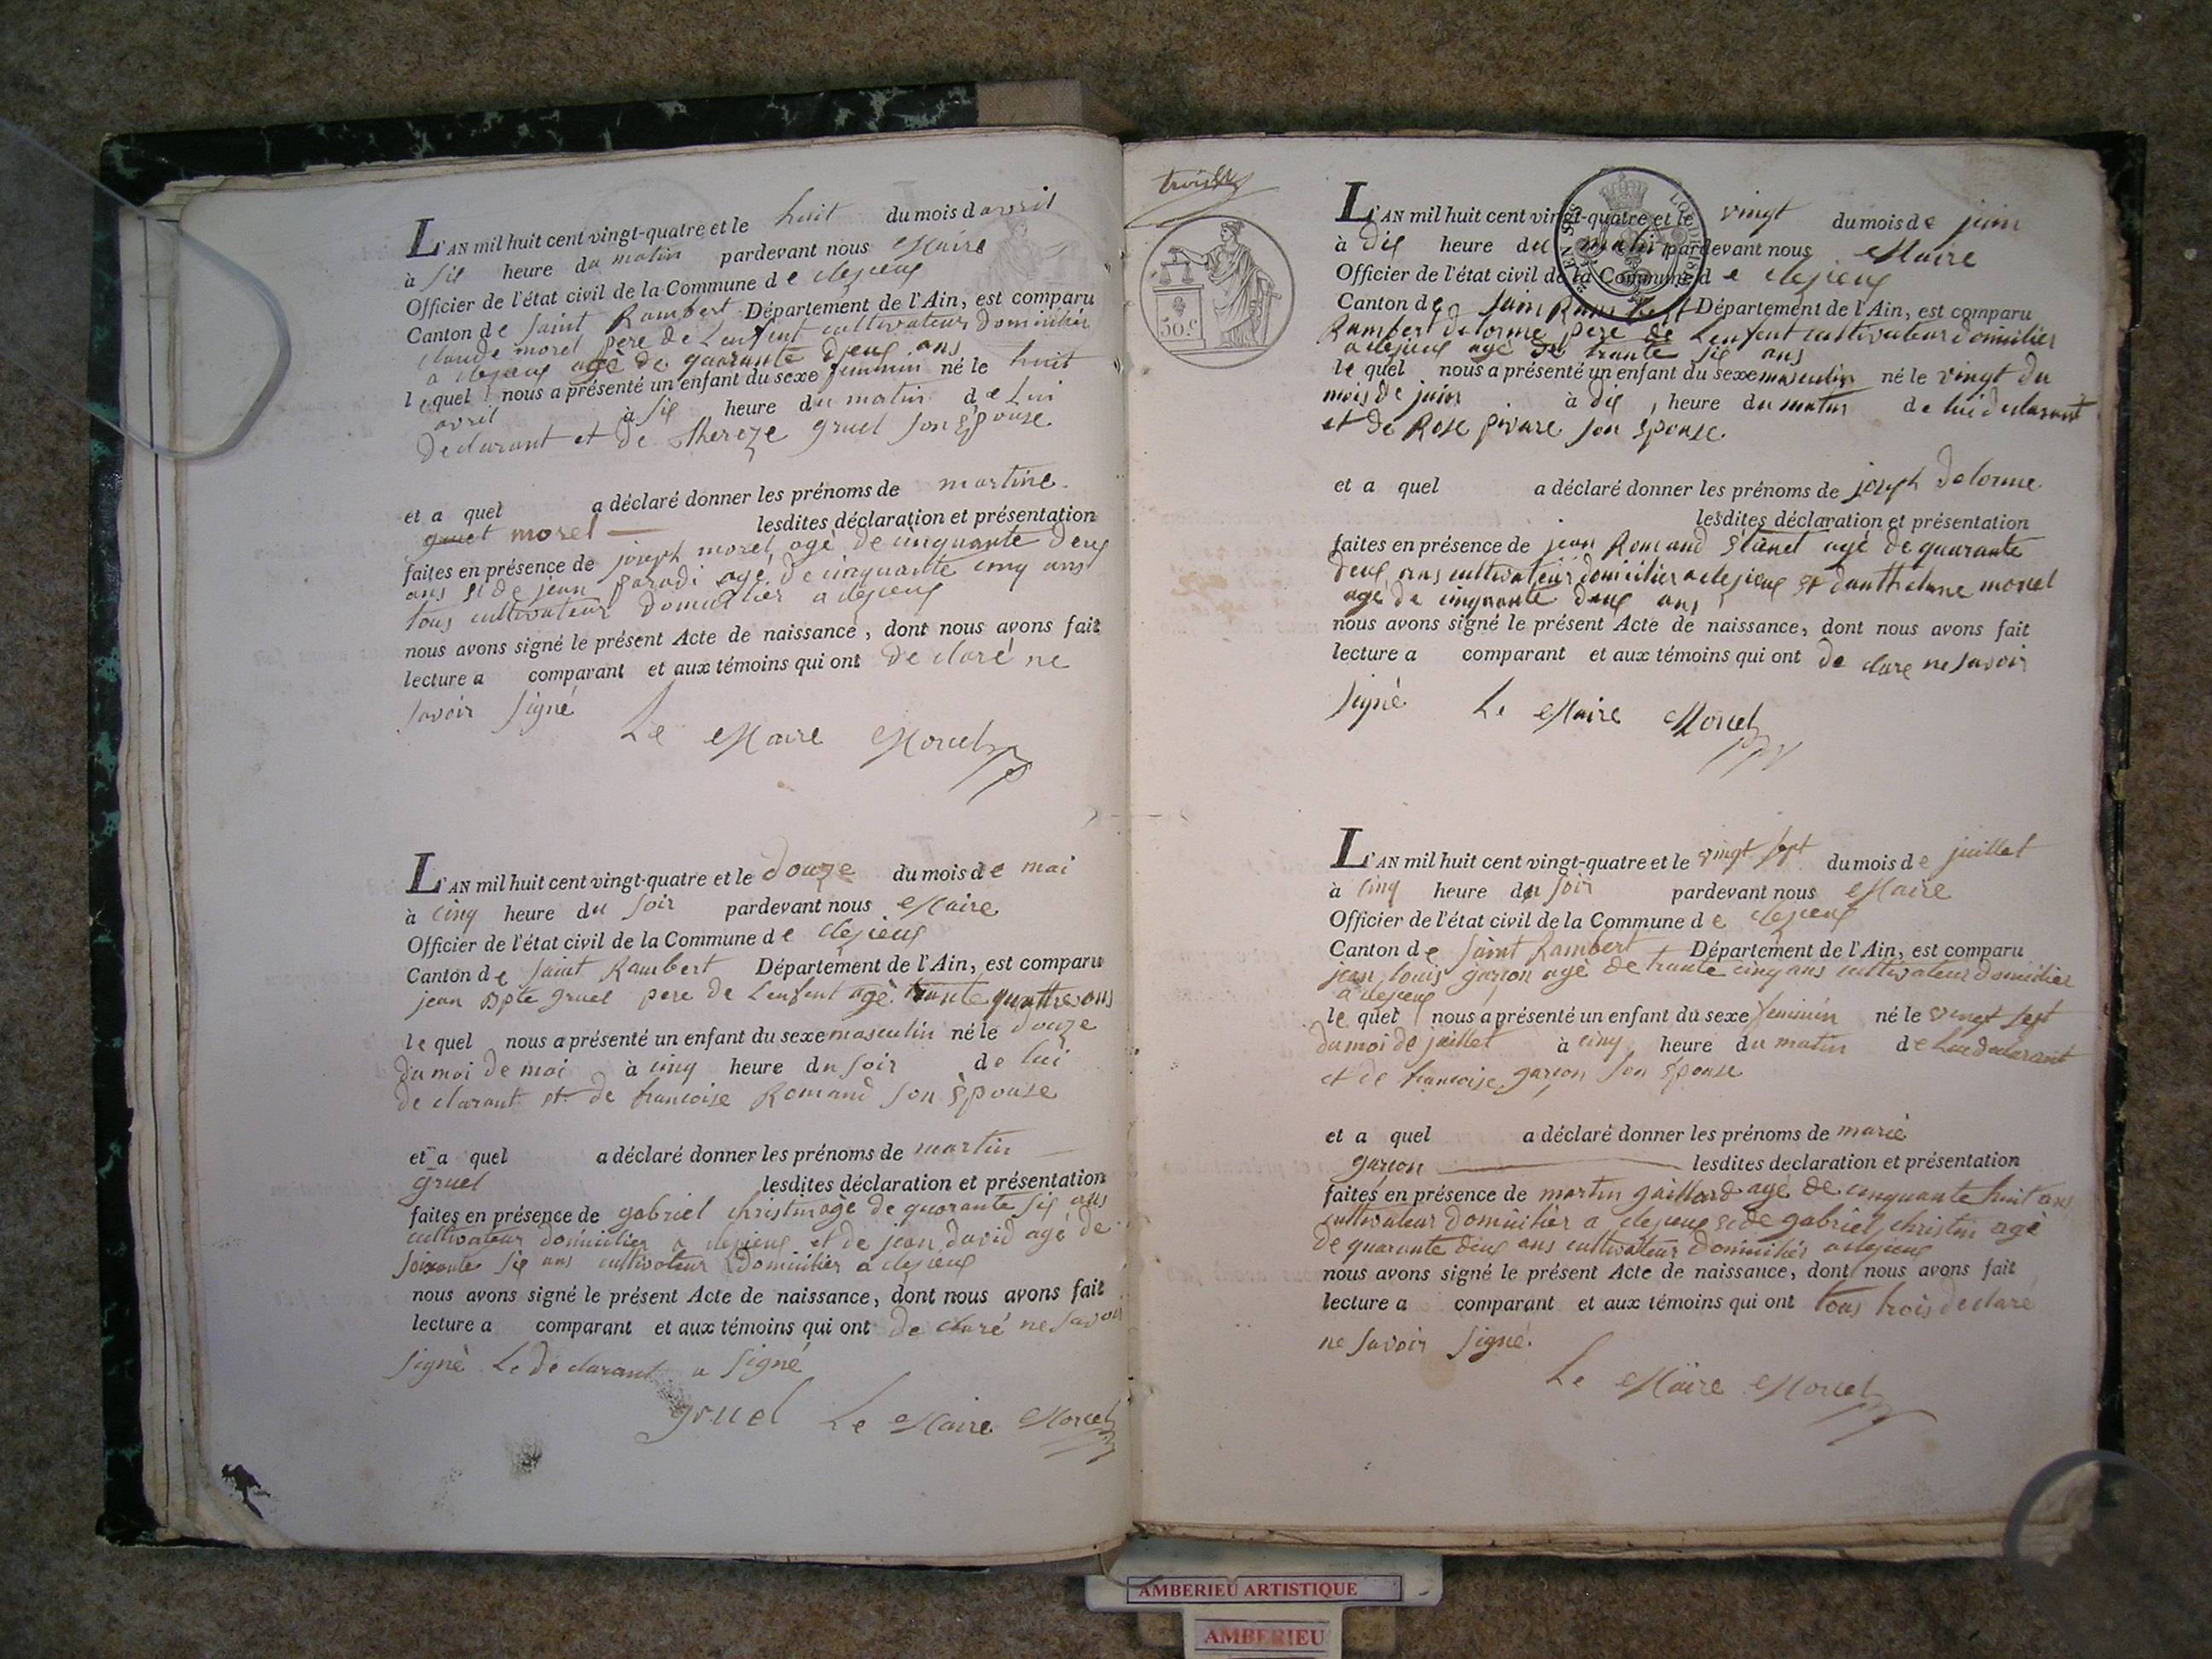 L'AN mil huit cent vingt-quatre et le huit du mois d avril
à six heure du matin pardevant nous Maire
Officier de l'état civil de la Commune de clezieux
Canton de saint Rambert Département de l'Ain, est comparu
claude morel pere de Lenfent cultivateur domicilier
a clezieux agé de quarante deux ans
lequel nous a présenté un enfant du sexe feminin né le huit
avril à six heure du matin de Lui
declarant et de Thereze gruel son Epouse
et a quel a déclaré donner les prénoms de martine
gruel morel lesdites déclaration et présentation
faites en présence de joseph morel agé de cinquante deux
ans et de jean parodi agé de cinquante cinq ans
tous cultivateur domicilier a clezieux
nous avons signé le présent Acte de naissance, dont nous avons fait
lecture a comparant et aux témoins qui ont de claré ne
savoir signé
Le Maire Morcel
L'AN mil huit cent vingt-quatre et le douze du mois de mai
à cinq heure du soir pardevant nous Maire
Officier de l'état civil de la Commune de clezieux
Canton de saint Rambert Département de l'Ain, est comparu
jean Bpte gruel pere de Lenfent agé trante quattre ans
lequel nous a présenté un enfant du sexe masculin né le douze
du moi de mai à cinq heure du soir de lui
de clarant et de francoise Romand son Epouse
et a quel a déclaré donner les prénoms de martin
gruel lesdites déclaration et présentation
faites en présence de gabriel christin agé de quarante six ans
cultivateur domicilier a clezieux et de jean david agé de
soixante six ans cultivateur domicilier a clezieux
nous avons signé le présent Acte de naissance, dont nous avons fait
lecture a comparant et aux témoins qui ont de claré ne savoir
signé Le de clarant a signé
gruel Le Maire Morcel
50.c
L'AN mil huit cent vingt-quatre et le vingt du mois de juin
à dix heure du matin pardevant nous Maire
Officier de l'état civil de la Commune de clezieux
Canton de saint Rambert Département de l'Ain, est comparu
Rambert delorme pere de Lenfent cultivateur domicilier
a clezieux agé de trante six ans
lequel nous a présenté un enfant du sexe masculin né le vingt du
mois de juin à dix heure du matin de lui declarant
et de Rose pivare son Epouse
et a quel a déclaré donner les prénoms de joseph delorme
lesdites déclaration et présentation
faites en présence de jean Romand agé de quarante
deux ans cultivateur domicilier a clezieux et danthelme morcel
agé de cinquante deux ans
nous avons signé le présent Acte de naissance, dont nous avons fait
lecture a comparant et aux témoins qui ont de clare ne savoir
signé Le Maire Morcel
L'AN mil huit cent vingt-quatre et le vingt sept du mois de juillet
à cinq heure du soir pardevant nous Maire
Officier de l'état civil de la Commune de clezieux
Canton de saint Rambert Département de l'Ain, est comparu
jean louis garson agé de trante cinq ans cultivateur domicilier
a clezieux
lequel nous a présenté un enfant du sexe feminin né le vingt sept
du moi de juillet à cinq heure du matin de Lui declarant
et de francoise garson son Epouse
et a quel a déclaré donner les prénoms de marie
garson lesdites declaration et présentation
faites en présence de martin gaillard agé de cinquante huit ans
cultivateur domicilier a clezieux et de gabriel christin agé
de quarante deux ans cultivateur domicilier a clezieux
nous avons signé le présent Acte de naissance, dont nous avons fait
lecture a comparant et aux témoins qui ont tous trois declaré
ne savoir signé.
Le Maire Morcel
AMBERIEU ARTISTIQUE
AMBERIEU